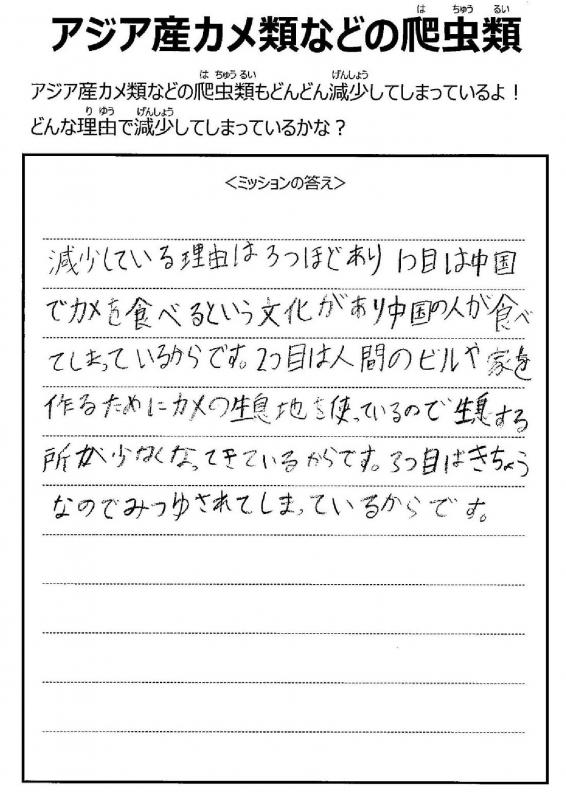 アジア産カメ類などの爬虫類
アジア産カメ類などの爬虫類もどんどん減少してしまっているよ！
どんな理由で減少してしまっているかな？
<ミッションの答え>
減少している理由は3つほどあり 1つ目は中国
でカメを食べるという文化があり中国の人が食べ
てしまっているからです。2つ目は人間のビルや家を
作るためにカメの生息地を使っているので生息する
所が少なくなってきているからです。3つ目はきちょう
なのでみつゆされてしまっているからです。